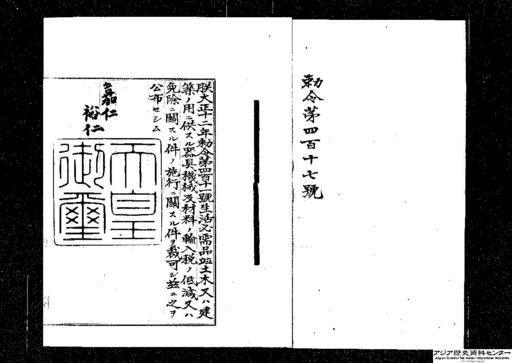 勅令第四百十七號
朕大正十二年勅令第四百十一號生活必需品竝土木又ハ建
築ノ用ニ供スル器具機械及材料ノ輸入税ノ低減又ハ
免除ニ關スル件ノ施行ニ關スル件ヲ裁可シ玆ニ之ヲ
公布セシム
嘉仁
裕仁
天皇
御璽
アジア歴史資料センター
Japan Center for Asian Historical Records